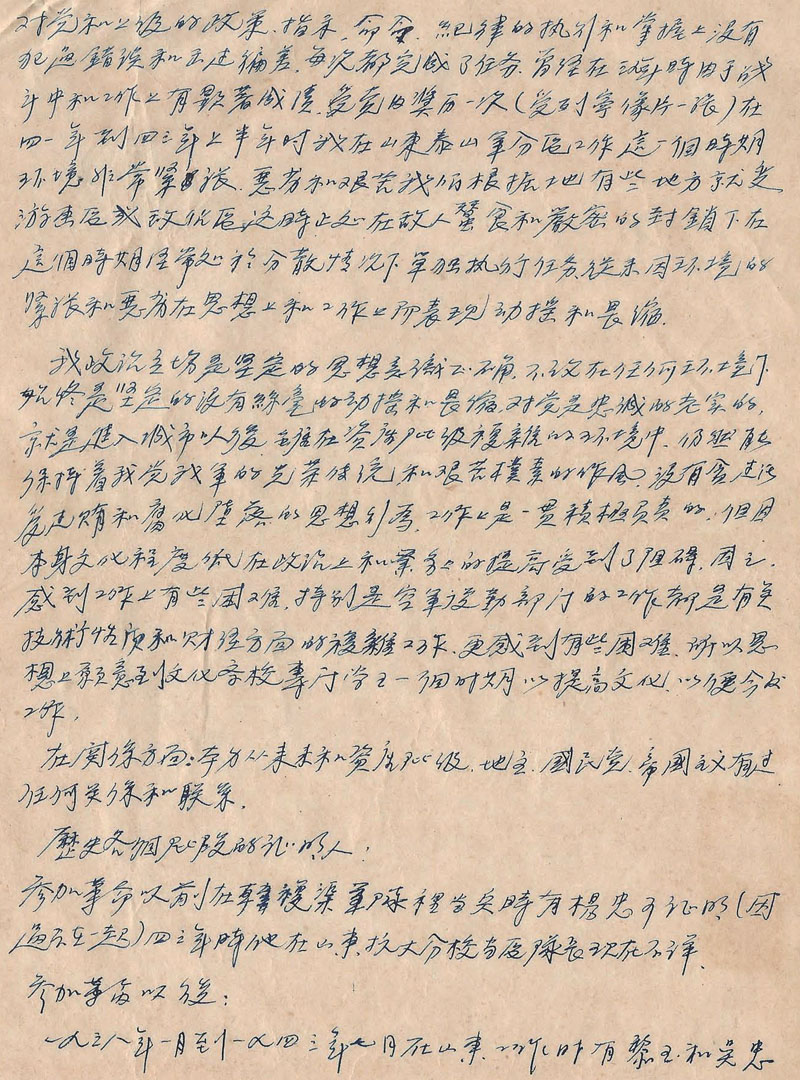 对党和上级的政策、指示、命令、纪律的执行和掌握上没有
犯过錯误和大过偏差,每次都完成了任务,曾经在上海時由于战
斗中和工作上有顯著成績,受党内奖历一次(受列寧像片一张)在
四一年到四三年上半年时我在山東泰山軍分區工作這一個時期
环境非常緊张、恶劣和艰苦我们根据地有些地方就变
游击區或敌优區,这時正处在敌人蠶食和嚴密的封鎖下在
這個時期经常处於分散情况下單独执行任务從未因环境的
緊张和恶劣在思想上和工作上所表现动摇和畏缩.
我政治立场是坚定的思想意識正确,不论在任何环境下
始终是坚定的没有絲毫的动摇和畏缩,对党是忠誠的老实的,
就是進入城市以後,雖在资產阶级複雜的环境中,仍然能
保持着我党我軍的光荣传统和艰苦樸素的作風,没有贪污
和腐化堕落的思想行為,工作上是一貫積極負责的,但因
本身文化程度低在政治上和業务上的提高受到了阻碍,因之,
感到工作上有些困难,特别是空軍後勤部门的工作都是有关
技術性质和财经方面的複雜工作,更感到有些困难,所以思
想上願意到文化学校專门学上一個时期以提高文化,以便今后
工作.
在関係方面:本身从来未和资產阶级、地主、國民党、帝國主义有过
任何关係和联系.
歷史各個阶段的证明人:
参加革命以前在韓復榘軍隊裡当兵時有楊忠可证明(因
过去在一起)四三年時他在山東抗大分校当區隊长现在不详.
参加革命以後:
一九三八年一月到一九四三年七月在山東工作时有黎玉和吳忠